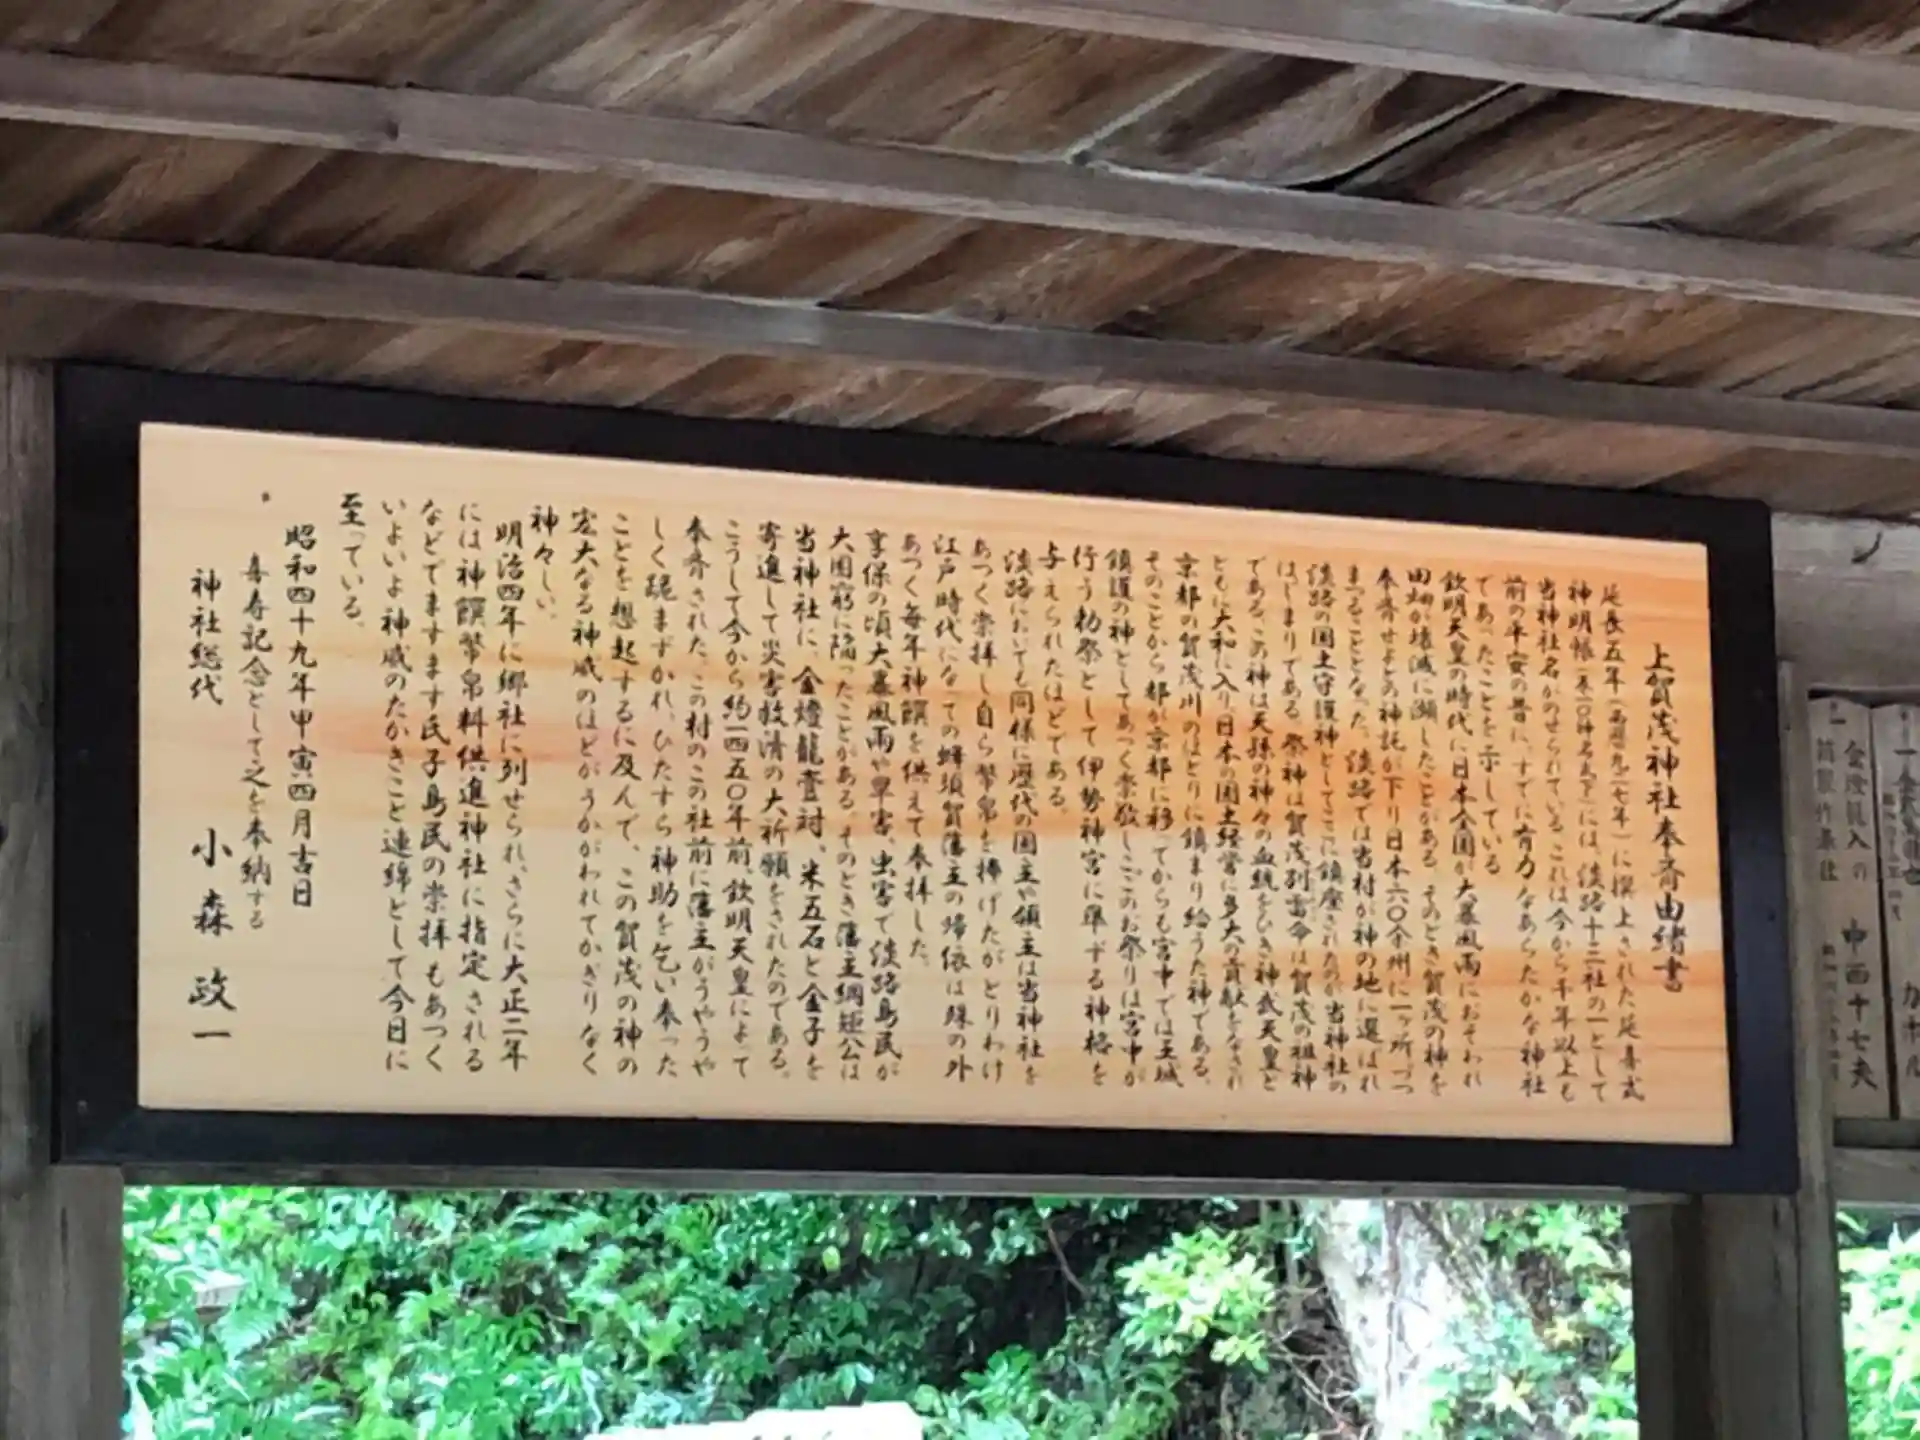 上賀茂神社奉斎由緒書
延長五年(西暦九二七年)に撰上された延喜式
神明帳には、淡路十三社の一として
当神社名がのせられている これは今から千年以上も
前の平安の昔に、すでに有力なあらたかな神社
であったことを示している
欽明天皇の時代に日本全国が大暴風雨におそわれ
田畑が壊滅に瀕したことがある。そのとき賀茂の神を
奉斎せよとの神託が下り日本六〇余州に一ヶ所づつ
まつることとなった。淡路では当村が神の地に選ばれ
淡路の国土守護神としてここに鎮座されたのが当神社の
はじまりである。祭神は賀茂別雷命は賀茂の祖神
である。この神は天孫の神々の血統をひき神武天皇と
ともに大和に入り日本の国土経営に多大の貢献をなされ
京都の賀茂川のほとりに鎮まり給うた神である。
そのことから都が京都に移ってからも宮中では王城
鎮護の神としてあつく崇敬しここのお祭りは宮中が
行う勅祭として伊勢神宮に準ずる神格を
与えられたほどである。
淡路においても同様に歴代の国主や領主は当神社を
あつく崇拝し自ら幣帛を捧げたがとりわけ
江戸時代になっての蜂須賀藩主の帰依は殊の外
あつく毎年神饌を供えて奉拝した。
享保の頃大暴風雨や旱害、虫害で淡路島民が
大困窮に陥ったことがある。そのとき藩主綱矩公は
当神社に、金燈籠壹対、米五石と金子を
寄進して災害救済の大祈願をされたのである。
こうして今から約一四五〇年前、欽明天皇によって
奉斎された、この村のこの社前に藩主がうやうや
しく跪まずかれ、ひたすら神助を乞い奉った
ことを想起するに及んで、この賀茂の神の
宏大なる神威のほどがうかがわれてかぎりなく
神々しい。
明治四年に郷社に列せられ、さらに大正二年
には神饌幣帛料供進神社に指定される
などでますます氏子島民の崇拝もあつく
いよいよ神威のたかきこと連綿として今日に
至っている。
昭和四十九年甲寅四月吉日
喜寿記念として之を奉納する
神社総代 小森政一
金燈籠入の
中西十七夫